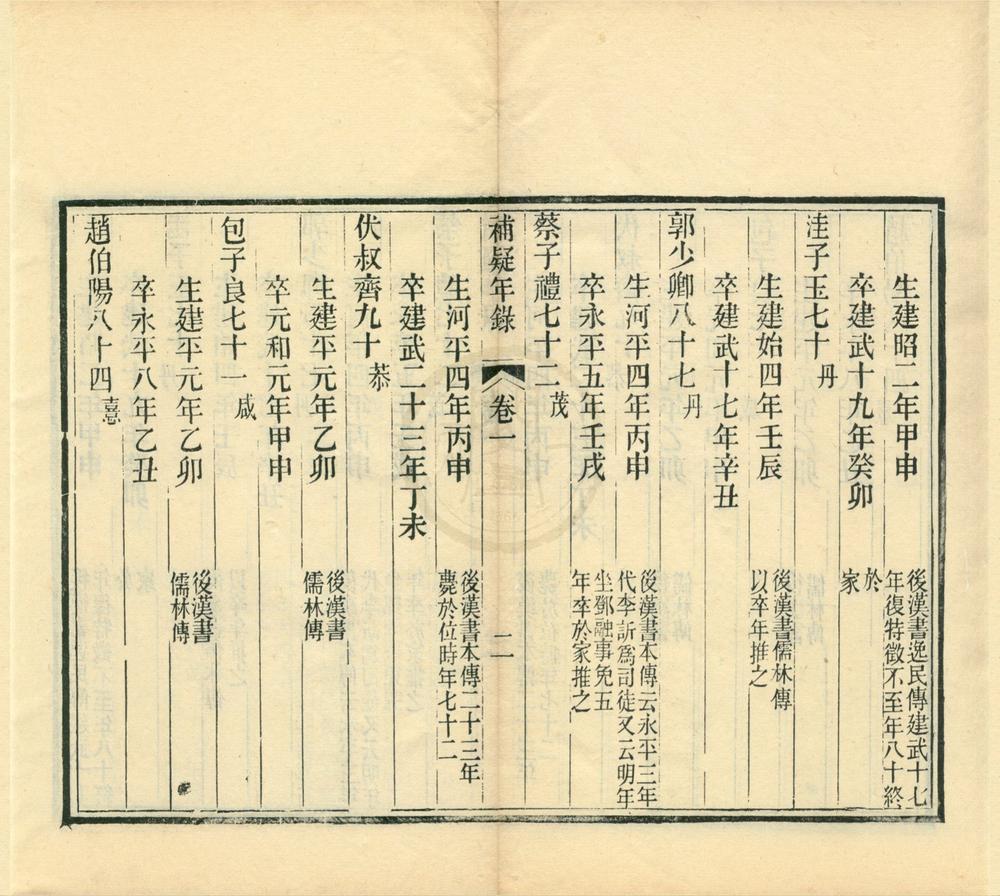 生建昭二年甲申 後漢書逸民傳建武十七
年復特徵不至年八十終
卒建武十九年癸卯 於
家
洼子玉七十 丹
生建始四年壬辰 後漢書儒林傳
以卒年推之
卒建武十七年辛丑
郭少卿八十七 丹
生河平四年丙申 後漢書本傳云永平三年
代李訢爲司徒又云明年
卒永平五年壬戌 坐鄧融事免五
年卒於家推之
蔡子禮七十二 茂
補疑年錄 卷一 二
生河平四年丙申 後漢書本傳二十三年
薨於位時年七十二
卒建武二十三年丁未
伏叔齊九十 恭
生建平元年乙卯 後漢書
儒林傳
卒元和元年甲申
包子良七十一 咸
生建平元年乙卯 後漢書
儒林傳
卒永平八年乙丑
趙伯陽八十四 憙